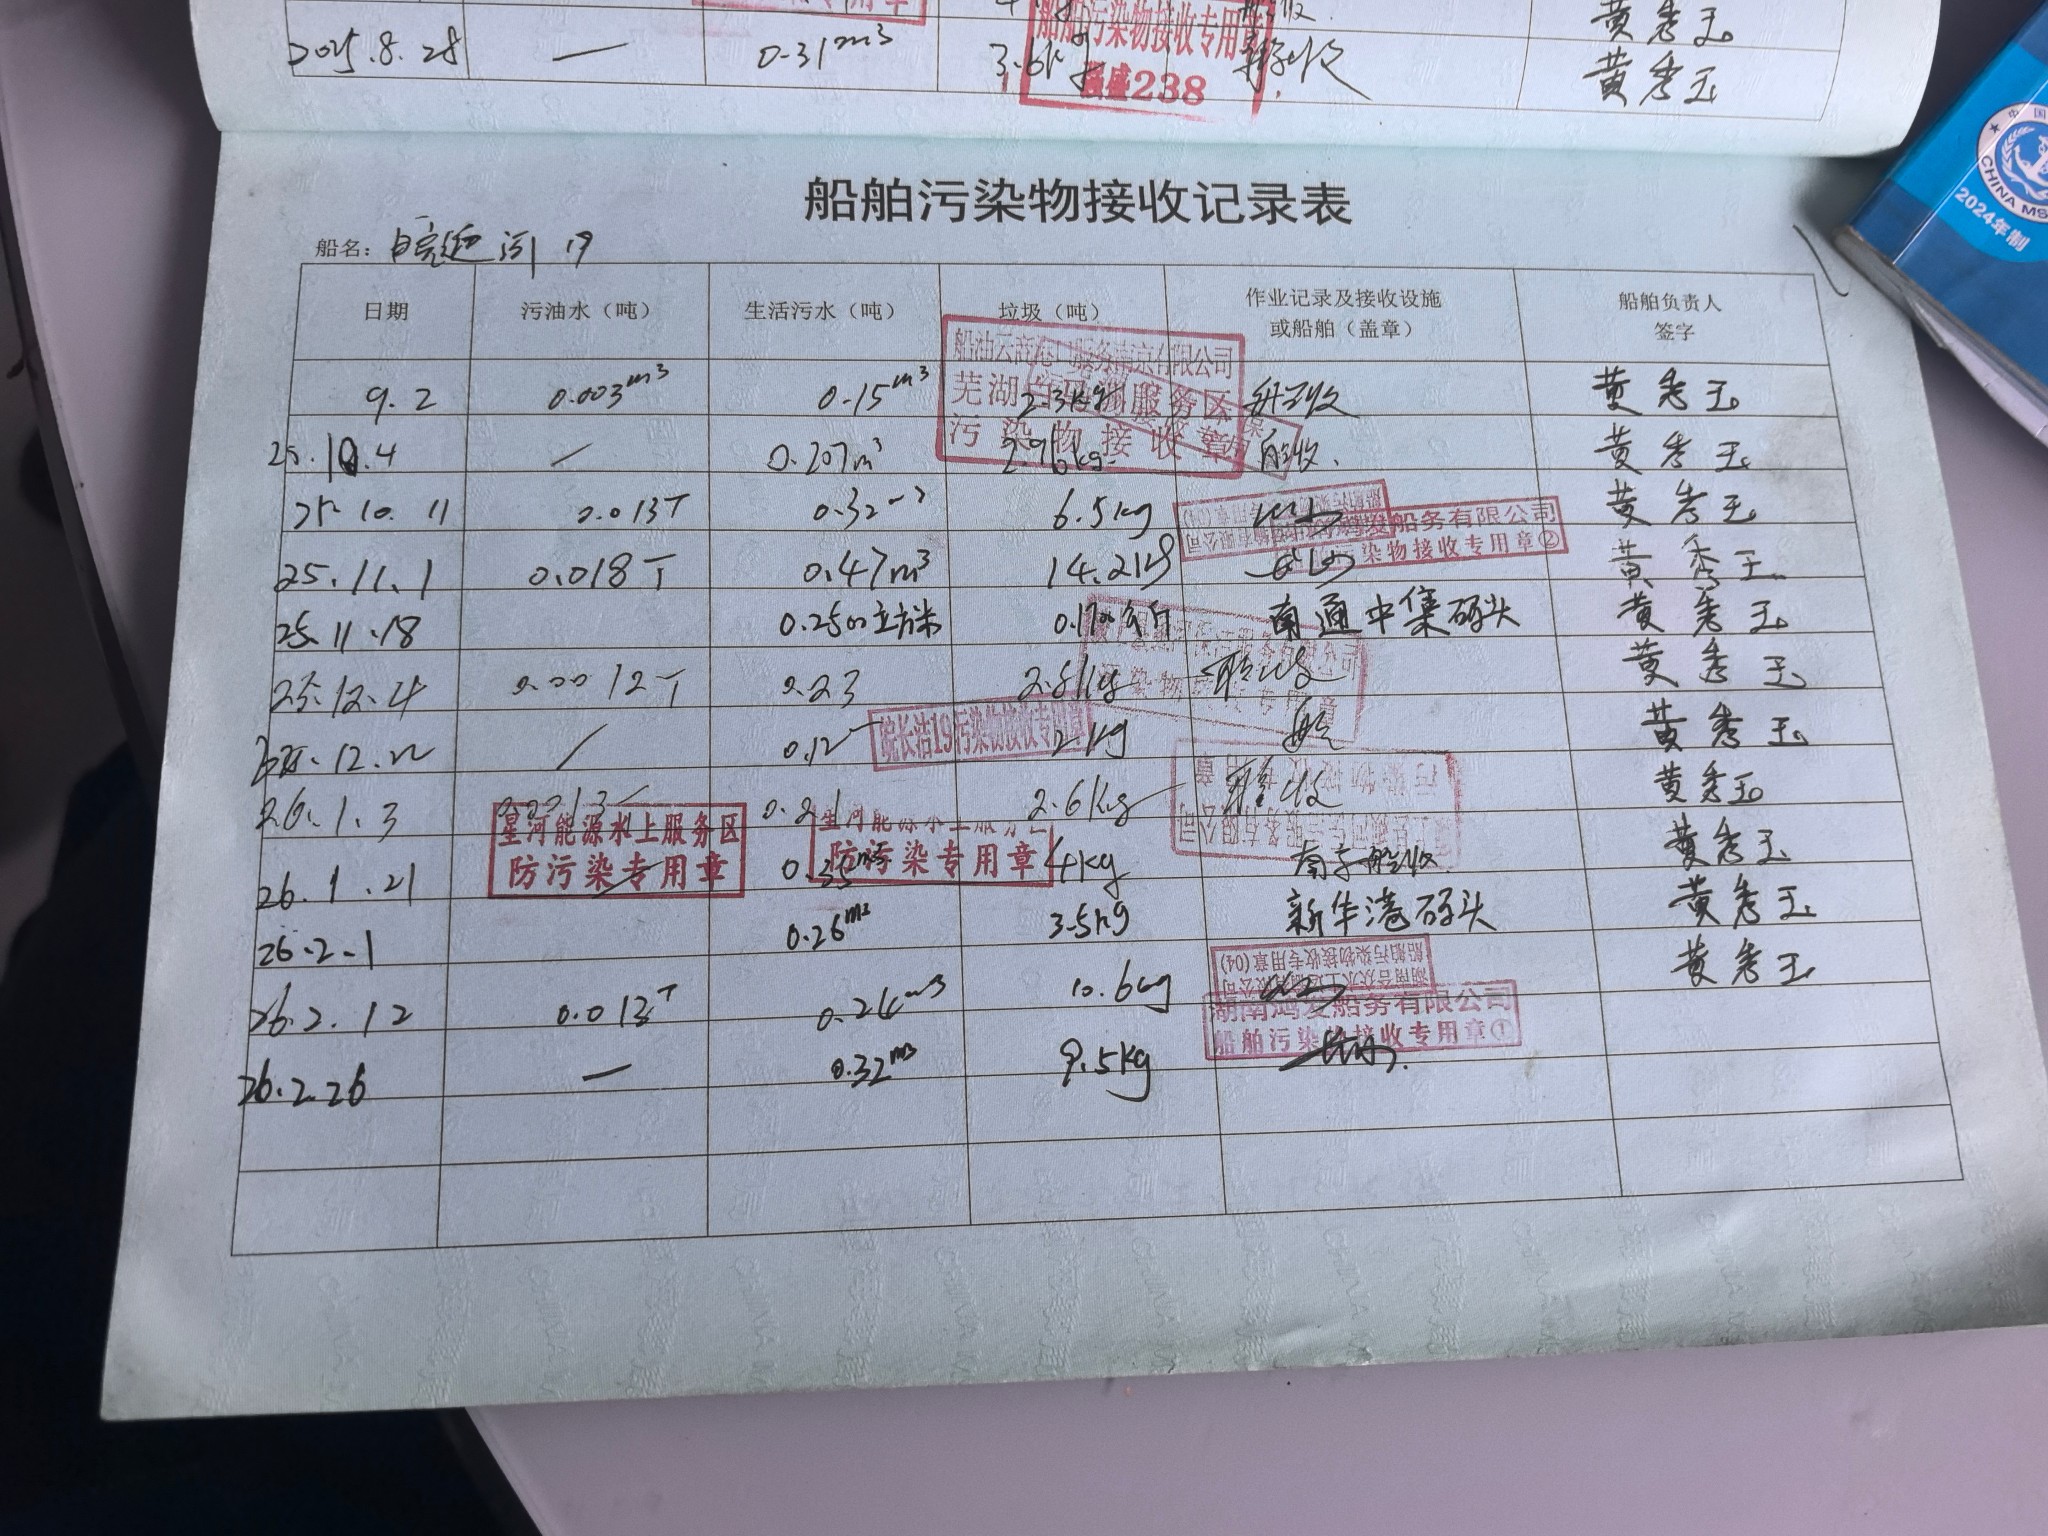 2025.8.28 — 0.31m³ 3.6kg 黄秀玉
黄秀玉
船舶污染物接收专用章
盛238
中国
CHINA MS
2024年制
船舶污染物接收记录表
船名: 皖 河 19
日期 污油水（吨） 生活污水（吨） 垃圾（吨） 作业记录及接收设施或船舶（盖章） 船舶负责人签字
船油云商港口服务南京有限公司
芜湖 服务区
污染物接收章
9.2 0.003m³ 0.15m³ 2.3kg 黄秀玉
25.10.4 / 0.207m³ 2.96kg 船收. 黄秀玉
25.10.11 0.013T 0.32m³ 6.5kg 黄秀玉
发船务有限公司
染物接收专用章②
25.11.1 0.018T 0.47m³ 14.21kg 黄秀玉
25.11.18 0.2500立方米 0.1700公斤 南通中集码头 黄秀玉
25.12.4 0.0012T 0.23 2.8kg 黄秀玉
皖长洁19污染物接收专用章
25.12.22 / 0.12 2kg 黄秀玉
26.1.3 0.0013 0.21 2.6kg 收 黄秀玉
星河能源水上服务区
防污染专用章
星河能源水上服务区
防污染专用章
26.1.21 0.35m³ 4kg 南京船收 黄秀玉
26.2.1 0.26m³ 3.5kg 新华港码头 黄秀玉
船舶污染物接收专用章(04)
26.2.12 0.013T 0.24m³ 10.6kg 黄秀玉
湖南鸿发船务有限公司
船舶污染物接收专用章①
26.2.26 — 0.32m³ 9.5kg